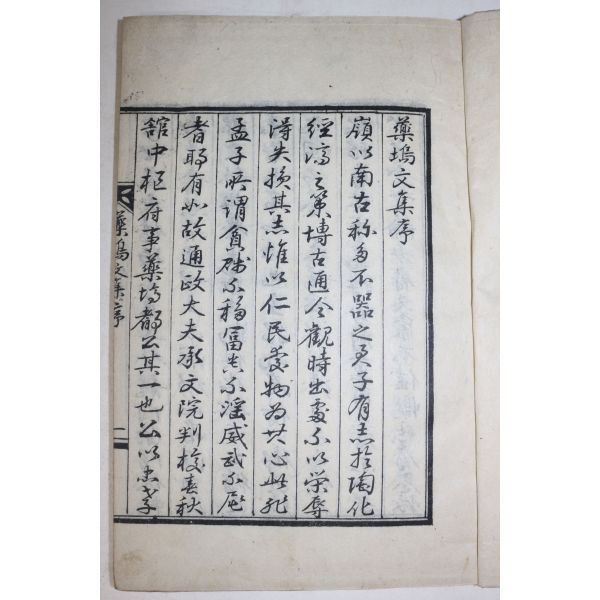 藥塢文集序
嶺以南古称多不器之君子有志於陶化
經濟之策博古通今觀時出處不以榮辱
得失損其志惟以仁民愛物為其心此非
孟子所謂貧賤不移冨貴不淫威武不屈
者耶有如故通政大夫承文院判校春秋
舘中枢府事藥塢都公其一也公以忠孝
藥塢文集序
一